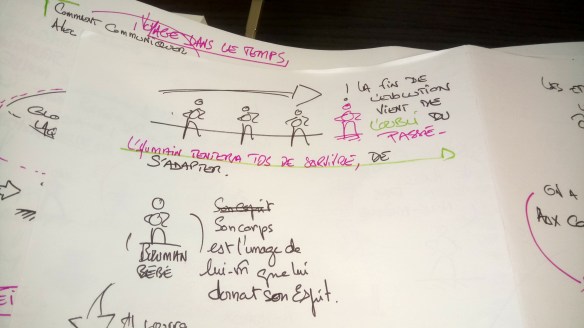 COMMENT COMMUNIQUER
VOYAGE DANS LE TEMPS,
! LA FIN DE
L'EVOLUTION
VIENT DE
L'OUBLI DU
PASSÉ-
L'HUMAIN TENTERA TJS DE SURVIVRE, DE
S'ADAPTER.
Son esprit
Son corps
est l'image de
lui-m̂ que lui
donnat son Esprit.
BÉBÉ
LES
ON A
AUX CO
EI